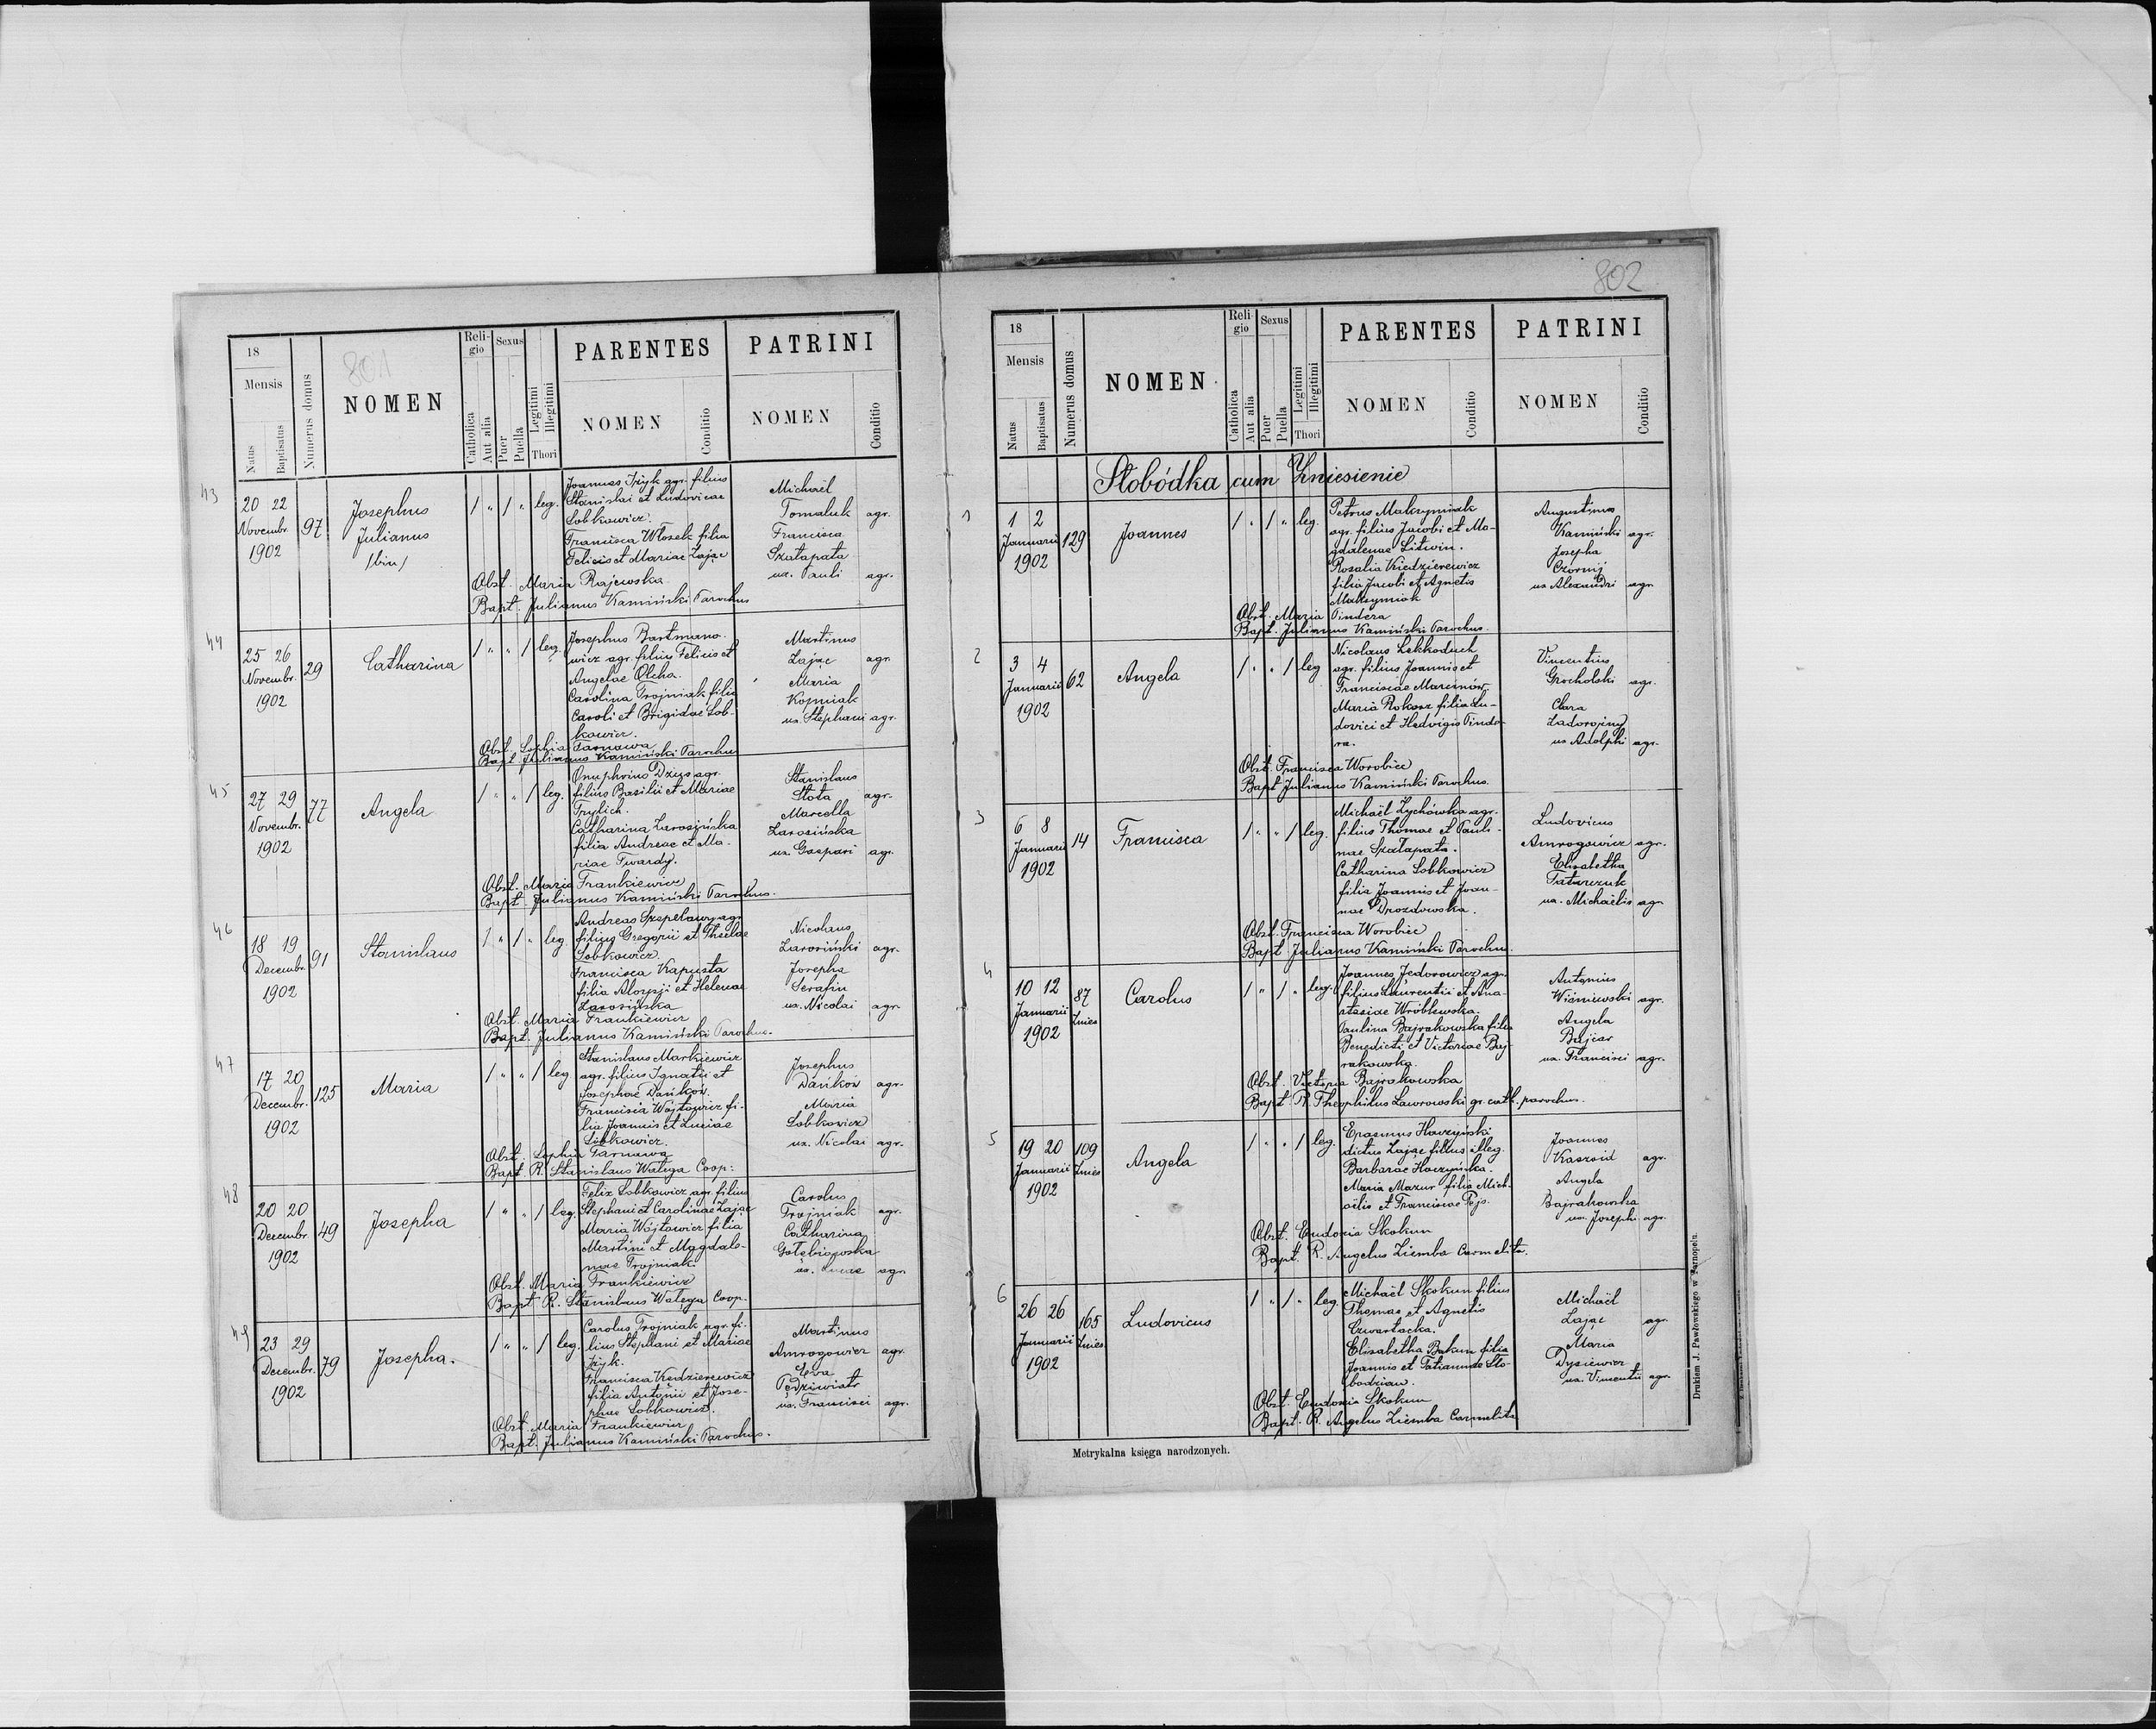 801
18
Mensis
Natus
Baptisatus
Numerus domus
NOMEN
Reli-
gio
Catholica
Aut alia
Sexus
Puer
Puella
Legitimi
Illegitimi
Thori
PARENTES
NOMEN
Conditio
PATRINI
NOMEN
Conditio
43
20 22
Novembr.
1902
97
Josephus
Julianus
/bin/
leg.
Joannes Iżyk agr. filius
Stanislai et Ludovicae
Lobkowicz.
Francisca Włosek filia
Felicis et Mariae Zając
Michaël
Tomaluk agr.
Francisca
Szałapata
ux. Pauli agr.
Obst. Maria Rajewska
Bapt. Julianus Kamiński Parochus
44
25 26
Novembr.
1902
29
Catharina
leg.
Josephus Bartmano-
wicz agr. filius Felicis et
Angelae Olcha.
Carolina Trojniak filia
Caroli et Brigidae Lob-
kowicz.
Martinus
Zając agr.
Maria
Kopniak
ux. Stephani agr.
Obst. Sophia Tarnawa
Bapt. Julianus Kamiński Parochus
45
27 29
Novembr.
1902
77
Angela
leg.
Onuphrius Dzius agr.
filius Basilii et Mariae
Trylich.
Catharina Zarosińska
filia Andreae et Ma-
riae Twardy.
Stanislaus
Słota agr.
Marcella
Zarosińska
ux. Gaspari agr.
Obst. Maria Frankiewicz
Bapt. Julianus Kamiński Parochus.
46
18 19
Decembr.
1902
91
Stanislaus
leg.
Andreas Szepelawy agr.
filius Gregorii et Theclae
Lobkowicz.
Francisca Kapusta
filia Aloysii et Helenae
Zarosińska
Nicolaus
Zarosiński agr.
Josepha
Serafin
ux. Nicolai agr.
Obst. Maria Frankiewicz
Bapt. Julianus Kamiński Parochus.
47
17 20
Decembr.
1902
125
Maria
leg
Stanislaus Markiewicz
agr. filius Ignatii et
Josephae Dańków.
Francisca Wójtowicz fi-
lia Joannis et Luciae
Lobkowicz.
Josephus
Dańków agr.
Maria
Lobkowicz
ux. Nicolai agr.
Obst. Sophia Tarnawa
Bapt. R. Stanislaus Wałęga Coop:
48
20 20
Decembr.
1902
49
Josepha
leg.
Felix Lobkowicz agr. filius
Stephani et Carolinae Zając
Maria Wójtowicz filia
Martini et Magdale-
nae Trojniak.
Carolus
Trojniak agr.
Catharina
Gołębiowska
ux. Lucae agr.
Obst. Maria Frankiewicz
Bapt R. Stanislaus Wałęga Coop.
49
23 29
Decembr.
1902
79
Josepha.
leg.
Carolus Trojniak agr. fi-
lius Stephani et Mariae
Iżyk.
Francisca Kędzierewicz
filia Antonii et Jose-
phae Lobkowicz.
Martinus
Amrogowicz agr.
Eva
Pędziwiatr
ux. Francisci agr.
Obst. Maria Frankiewicz
Bapt. Julianus Kamiński Parochus.
802
18
Mensis
Natus
Baptisatus
Numerus domus
NOMEN
Reli-
gio
Catholica
Aut alia
Sexus
Puer
Puella
Legitimi
Illegitimi
Thori
PARENTES
NOMEN
Conditio
PATRINI
NOMEN
Conditio
Słobódka cum Zniesienie
1
1 2
Januarii
1902
129
Joannes
leg.
Petrus Maksymiak
agr. filius Jacobi et Ma-
gdalenae Litwin.
Rosalia Kiedzierewicz
filia Jacobi et Agnetis
Maksymiak
Augustinus
Kamiński agr.
Josepha
Czornij
ux Alexandri agr
Obst. Maria Pindera
Bapt. Julianus Kamiński Parochus.
2
3 4
Januarii
1902
62
Angela
leg
Nicolaus Lekkoduch
agr. filius Joannis et
Franciscae Marcinów.
Maria Rokosz filia Lu-
dovici et Hedvigis Pinde-
ra.
Vincentius
Grocholski agr.
Clara
Zadorojny
ux Adolphi agr.
Obst. Francisca Worobiec
Bapt Julianus Kamiński Parochus.
3
6 8
Januarii
1902
14
Francisca
leg.
Michaël Zychówka agr.
filius Thomae et Pauli-
nae Szałapata.
Catharina Lobkowicz
filia Joannis et Joan-
nae Drozdowska.
Ludovicus
Amrogowicz agr.
Elisabetha
Tatarczuk
ux. Michaëlis agr
Obst. Francisca Worobiec
Bapt Julianus Kamiński Parochus.
4
10 12
Januarii
1902
87
Znies
Carolus
leg.
Joannes Fedorowicz agr.
filius Laurentii et Ana-
stasiae Wróblewska.
Paulina Bajrakowska filia
Benedicti et Victoriae Baj-
rakowska.
Antonius
Wiśniewski agr.
Angela
Bajcar
ux. Francisci agr.
Obst. Victoria Bajrakowska
Bapt R. Theophilus Lawrowski gr. cath. parochus.
5
19 20
Januarii
1902
109
Znies
Angela
leg.
Erasmus Horzyński
dictus Zając filius illeg.
Barbarae Horzyńska.
Maria Mazur filia Mich-
aëlis et Franciscae Pejs.
Joannes
Kaszoid agr.
Angela
Bajrakowska
ux. Josephi agr.
Obst. Eudoxia Skokun
Bapt. R. Angelus Ziemba Carmelita.
6
26 26
Januarii
1902
165
Znies
Ludovicus
leg.
Michaël Skokun filius
Thomae et Agnetis
Czwartacka.
Elisabetha Bakun filia
Joannis et Tatiannae Sło-
bodzian.
Michaël
Zając agr.
Maria
Dysiewicz
ux. Vincentii agr.
Obst. Eudoxia Skokun
Bapt. R. Angelus Ziemba Carmelita
Metrykalna księga narodzonych.
Drukiem J. Pawłowskiego w Tarnopolu.